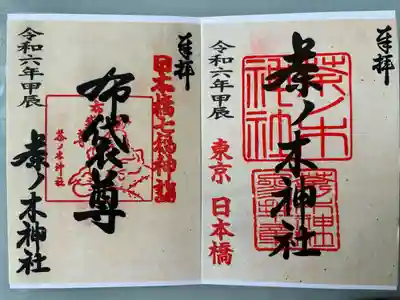 奉拝
茶ノ木神社
茶ノ木神社
令和六年甲辰
東京 日本橋
奉拝
日本橋七福神詣
布袋尊
茶ノ木神社
令和六年甲辰
茶ノ木神社